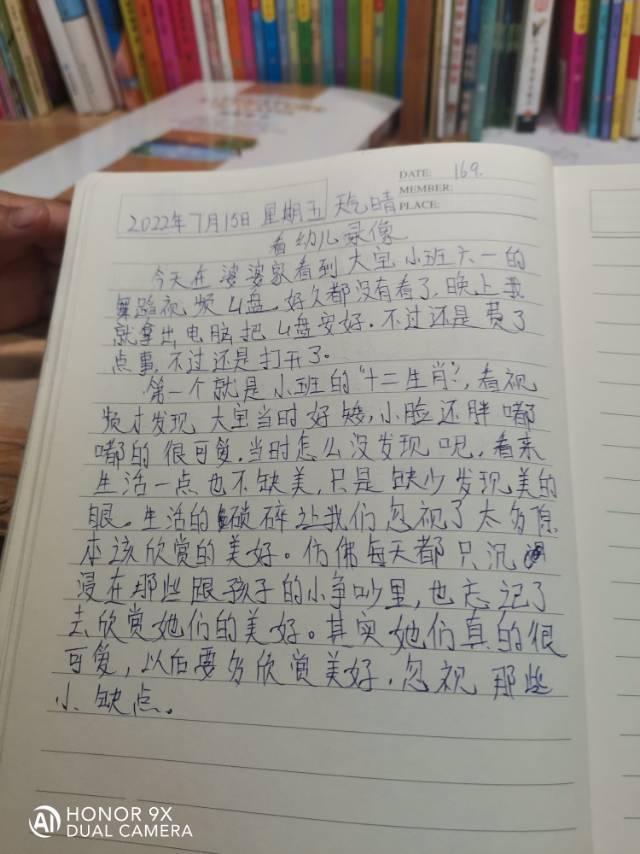 DATE: 169.
MEMBER:
PLACE:
2022年7月15日 星期五 天气晴
看幼儿录像
今天在婆婆家看到大宝小班六一的
舞蹈视频U盘.好久都没有看了,晚上我
就拿出电脑把U盘安好.不过还是费了
点事,不过还是打开了。
第一个就是小班的"十二生肖",看视
频才发现大宝当时好矮,小脸还胖嘟
嘟的很可爱.当时怎么没发现呢,看来
生活一点也不缺美,只是缺少发现美的
眼。生活的琐碎让我们忽视了太多原
本该欣赏的美好。仿佛每天都只沉
浸在那些跟孩子的小争吵里,也忘记了
去欣赏她们的美好。其实她们真的很
可爱,以后要多欣赏美好.忽视那些
小缺点。
HONOR 9X
DUAL CAMERA